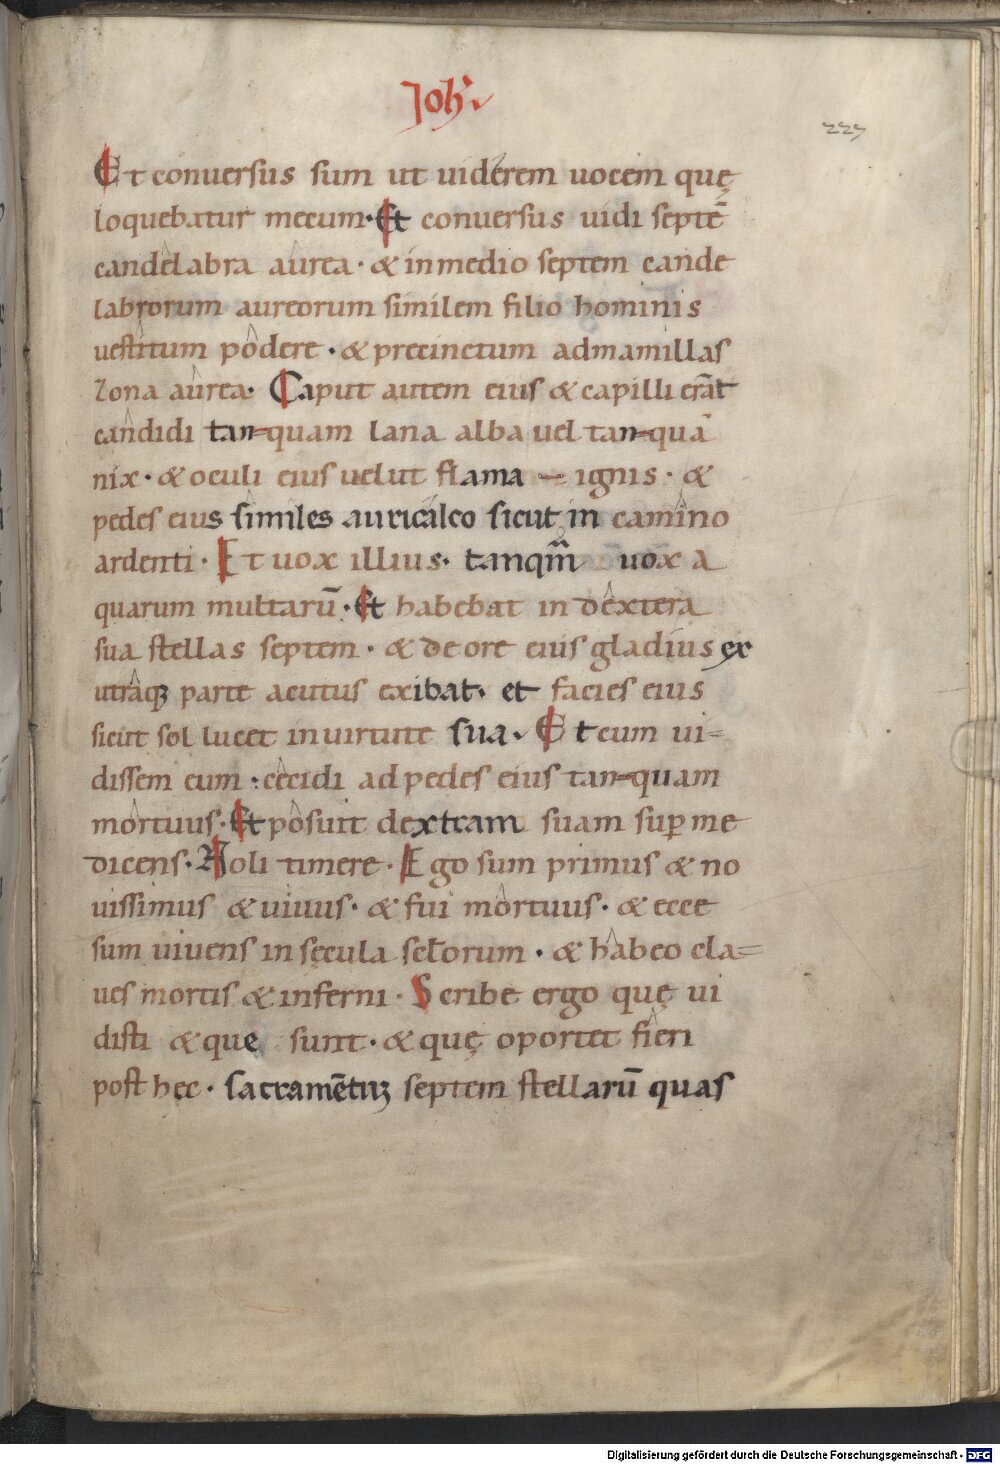 Joh'.
227
Et conuersus sum ut uiderem uocem quę
loquebatur mecum. Et conuersus uidi septē
candelabra aurea. & inmedio septem cande
labrorum aureorum similem filio hominis
uestitum podere. & precinctum admamillas
zona aurea. Caput autem eius & capilli erāt
candidi tan-quam lana alba uel tan-quā
nix. & oculi eius uelut flama - ignis. &
pedes eius similes auricalco sicut in camino
ardenti. Et uox illius. tanqm̄ uox a
quarum multarū. Et habebat in dextera
sua stellas septem. & de ore eius gladius ex
utraq; parte acutus exibat. et facies eius
sicut sol lucet inuirtute sua. Et cum ui-
dissem eum. cecidi ad pedes eius tan-quam
mortuus. Et posuit dextram suam sup̄ me
dicens. Noli timere. Ego sum primus & no
uissimus & uiuus. & fui mortuus. & ecce
sum uiuens in sęcula sclorum. & habeo cla=
ues mortis & inferni. Scribe ergo quę ui
disti & que sunt. & quę oportet fieri
post hęc. sacramētū septem stellarū quas
Digitalisierung gefördert durch die Deutsche Forschungsgemeinschaft - DFG